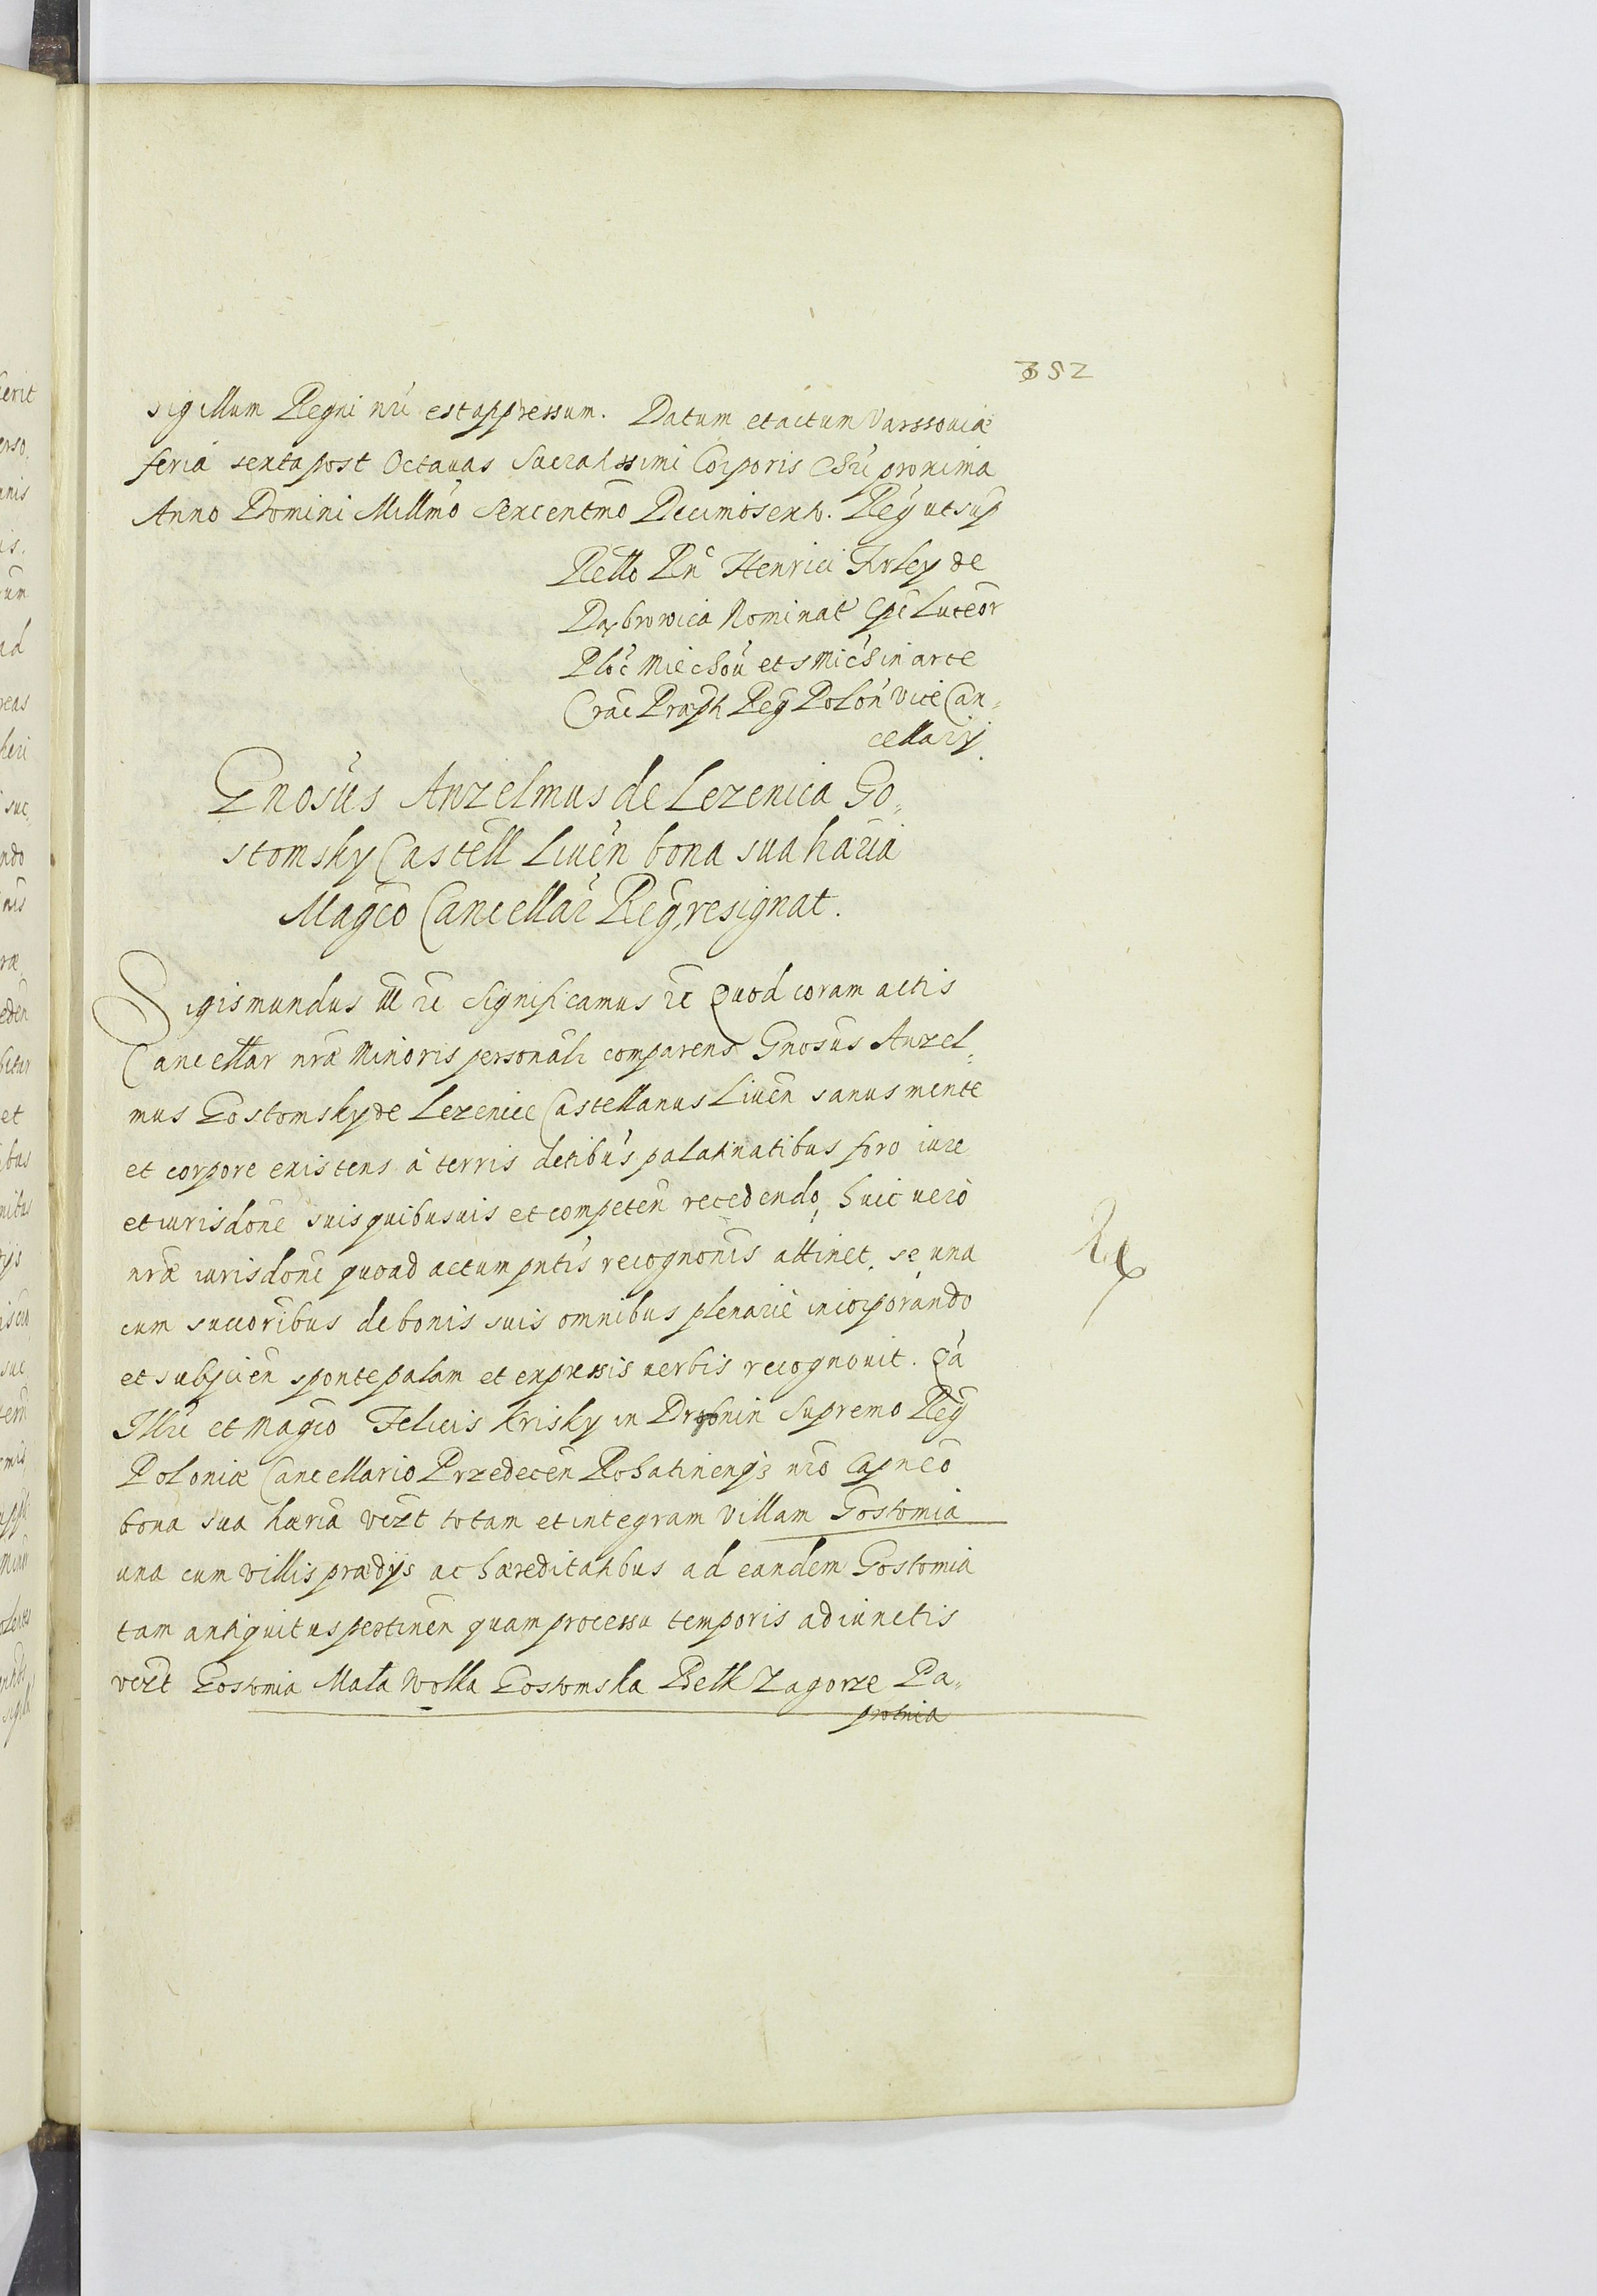 352
sigillum Regni nr̃i est appressum. Datum et actum Varssouiæ
feria sexta post Octauas Sacratissimi Corporis Chr̃i proxima
Anno Domini Millm̃o Sexcentm̃o Decimosexto. Reg̃ ut sup̃
Rello Rñ Henrici Firley de
Dąbrowica Nominat Ep̃i Luceor̃
Ploc̃ Miechou et S Mich in arce
Crac̃ Præp̃ti Reg̃ Polon̄ Vice Can„
cellarij.
Gnosũs Anzelmus de Lezenica Go„
stomsky Castell Liueñ bona sua hãria
Magc̃o Cancellar̃ Reg̃ resignat.
Sigismundus III rc̃ Significamus rc̃ Quod coram actis
Cancellar nr̃æ Minoris personalr̃ comparens Gnosũs Anzel„
mus Gostomsky de Lezenice Castellanus Liueñ sanus mente
et corpore existens à terris dc̃tibus palatinatibus foro iure
et iurisdonẽ suis quibusuis et competeñ recedendo, huic uerò
nr̃æ iurisdonĩ quoad actum pñtis recognonĩs attinet, se una
cum succoribus de bonis suis omnibus plenariè incorporando
et subijcieñ sponte palam et expressis uerbis recognouit. Qã
Illri et Magc̃o Felicis Krisky in Drobnin Supremo Reg̃
Poloniæ Cancellario Przedeceñ Rohatineng̃3 nr̃o Capñeo
bona sua hæria vzt totam et integram Villam Gostomia
una cum villis prædijs ac hæreditatibus ad eandem Gostomia
tam antiquitus pertineñ quam processu temporis adiunctis
vzt Gostomia Mała Wolka Gostomska Belk Zagorze Pa„
protnia